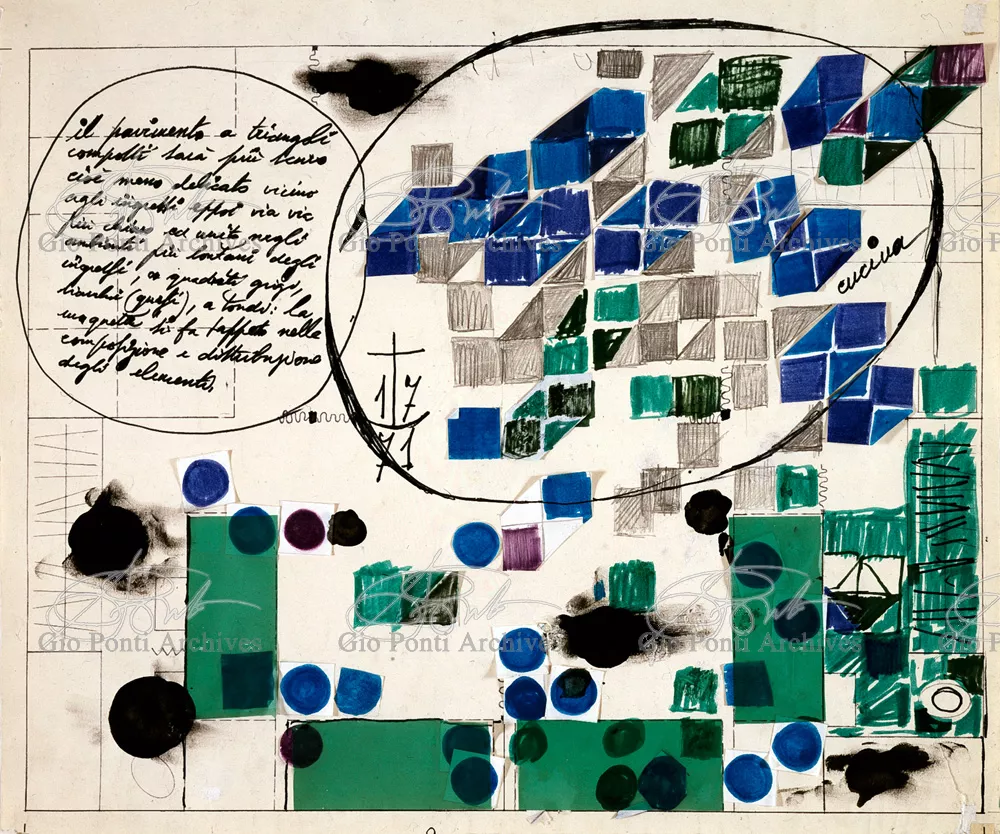 il pavimento a triangoli
composti sarà più scuro
cioè meno delicato vicino
agli ingressi eppoi via via
più chiaro ed unito negli
ambienti più lontani degli
ingressi, a quadrati grigi,
bianchi (questi), a tondi: la
moquette si fa tappeto nelle
composizione e distribuzione
degli elementi,
cucina
17
71
Gio Ponti Archives
Gio Ponti Archives
Gio Ponti Archives
Gio Ponti Archives
Gio Ponti Archives
Gio Ponti Archives